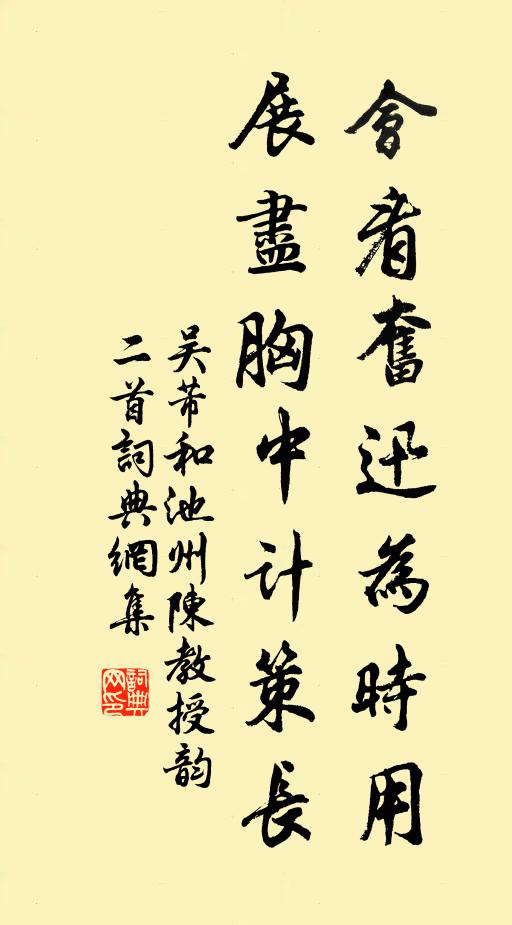 會看奮迅為時用
展盡胸中計策長
吳芾和池州陳教授韵
二首詞典網集
詞典网印